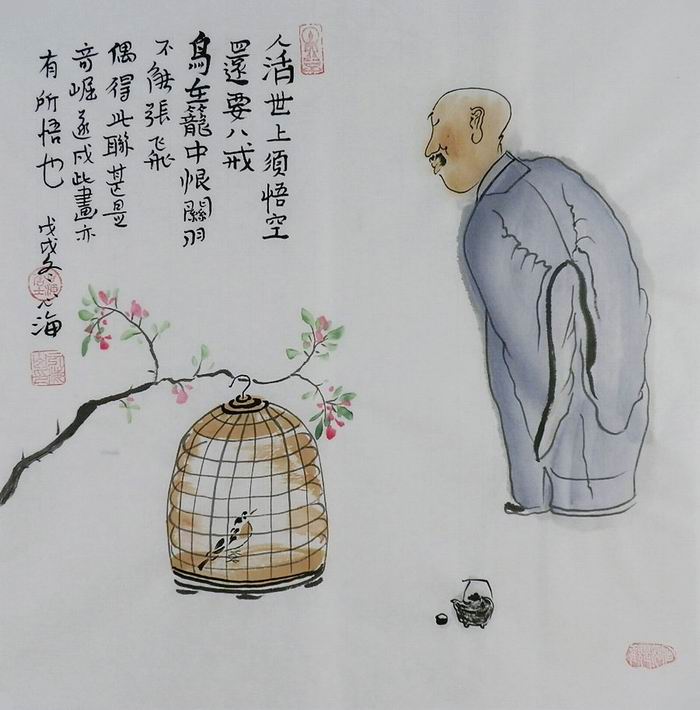 人活世上須悟空
四還要八戒
鳥在籠中恨關羽
不能張飛
偶得此聯甚是
奇崛遂成此畫亦
有所悟也
戊戌冬 海